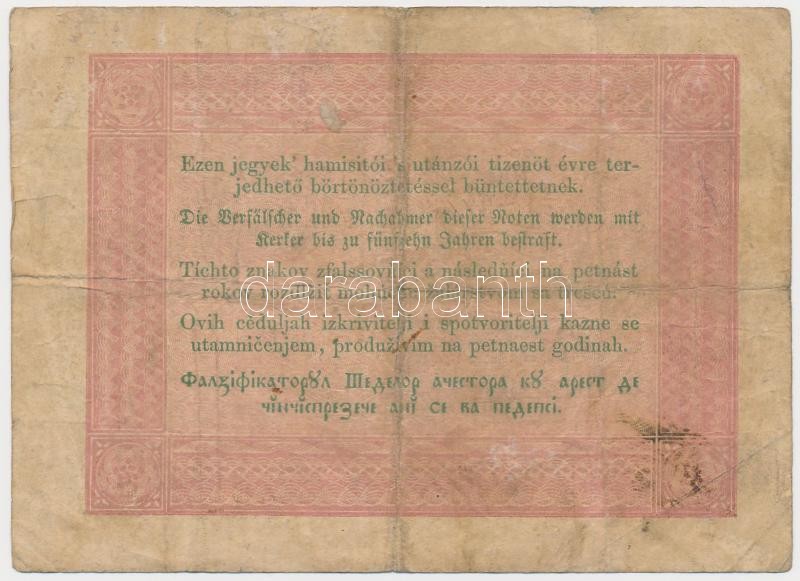 Ezen jegyek' hamisitói 's utánzói tizenöt évre ter-
jedhető börtönöztetéssel büntettetnek.
Die Verfälscher und Nachahmer dieser Noten werden mit
Kerker bis zu fünfzehn Jahren bestraft.
Tíchto znakov zfalssovňíci a následňíci na petnást
rokov
darabanth
Ovih cĕduljah izkrivitelji i spotvoritelji kazne se
utamničenjem, produživim na petnaest godinah.
Фалзіфікаторꙋл Шеделор ачестора кꙋ арест де
чінчіспрезече ані се ва педепсі.